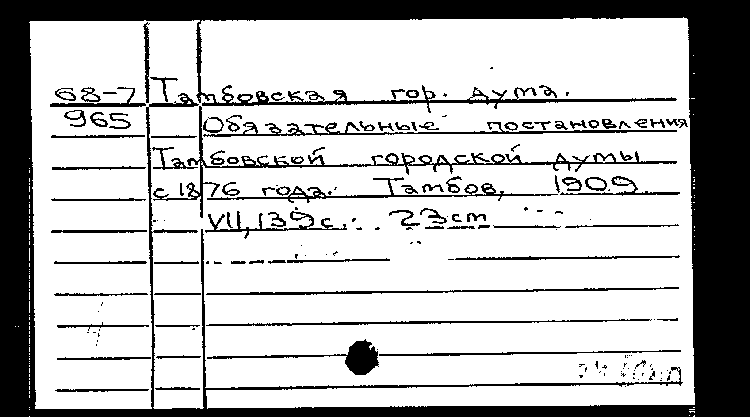 68-7 Тамбовская гор. дума.
965 Обязательные постановления
Тамбовской городской думы
с 1876 года. Тамбов, 1909.
VII, 139 с. 23 cm